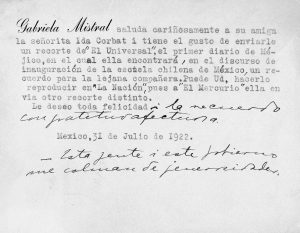 Gabriela Mistral saluda cariñosamente a su amiga
la señorita Ida Corbat i tiene el gusto de enviarle
un recorte de "El Universal", el primer diario de Mé-
jico, en el cual ella encontrará, en el discurso de
inauguración de la escuela chilena de México, un re-
cuerdo para la lejana compañera. Puede Ud. hacerlo
reproducir en "La Nación", pues a "El Mercurio" ella en-
vía otro recorte distinto.
Le deseo toda felicidad i la recuerdo
con gratitud afectuosa.
Mexico, 31 de Julio de 1922.
— Esta jente i este gobierno
me colman de jenerosidades.